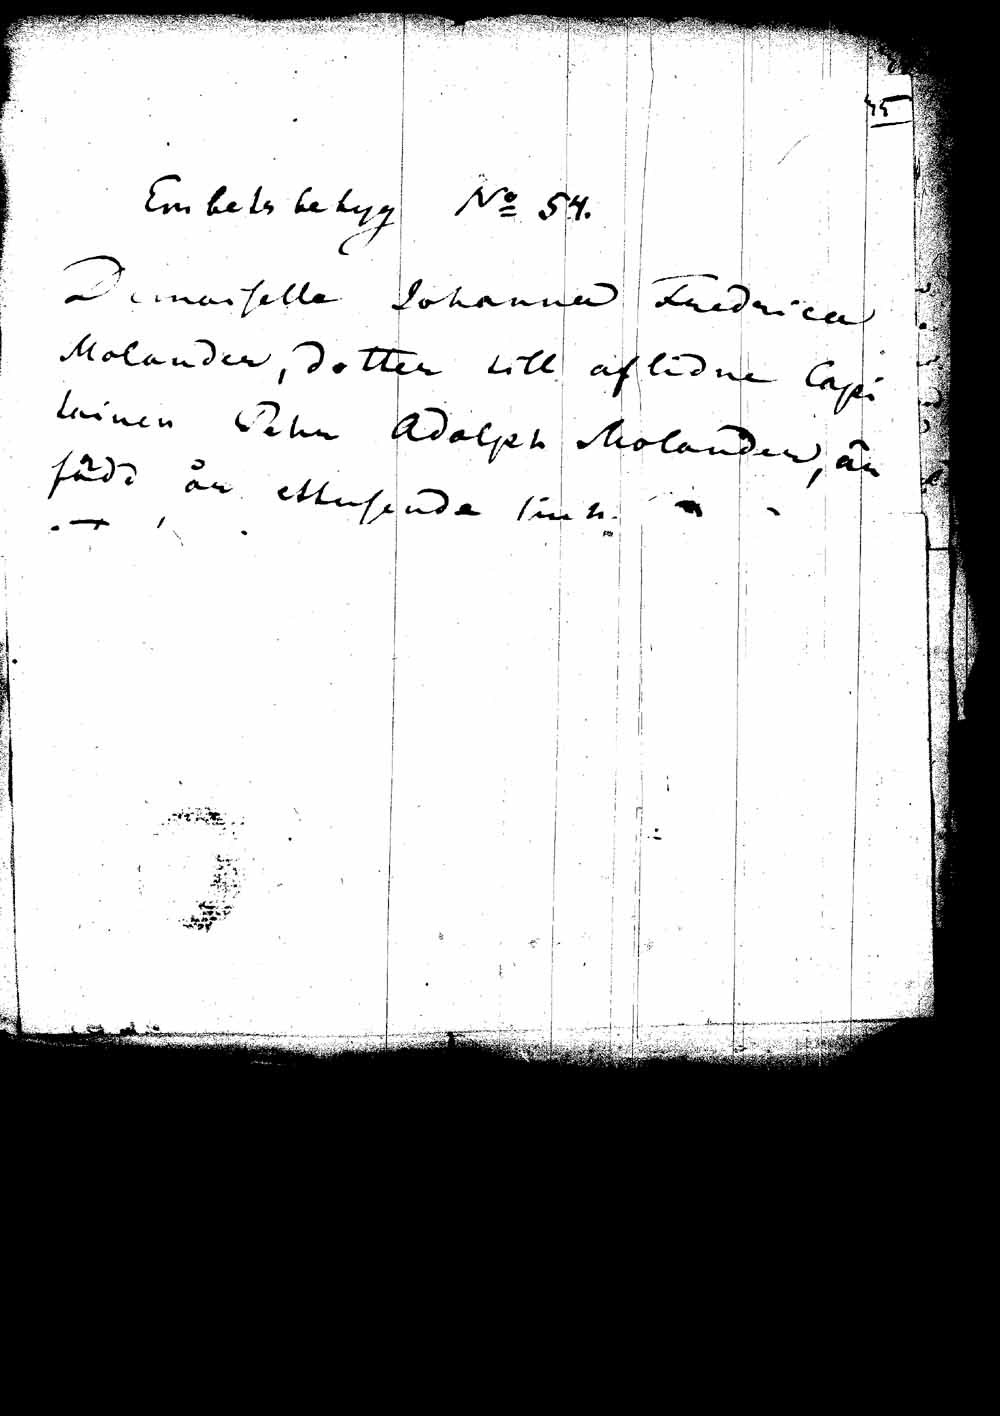 45
Embetsbetyg No 54.
Demoiselle Johanna Fredrica
Molander, dotter till aflidne Capi
tainen Pehr Adolph Molander, är
född år ettusende